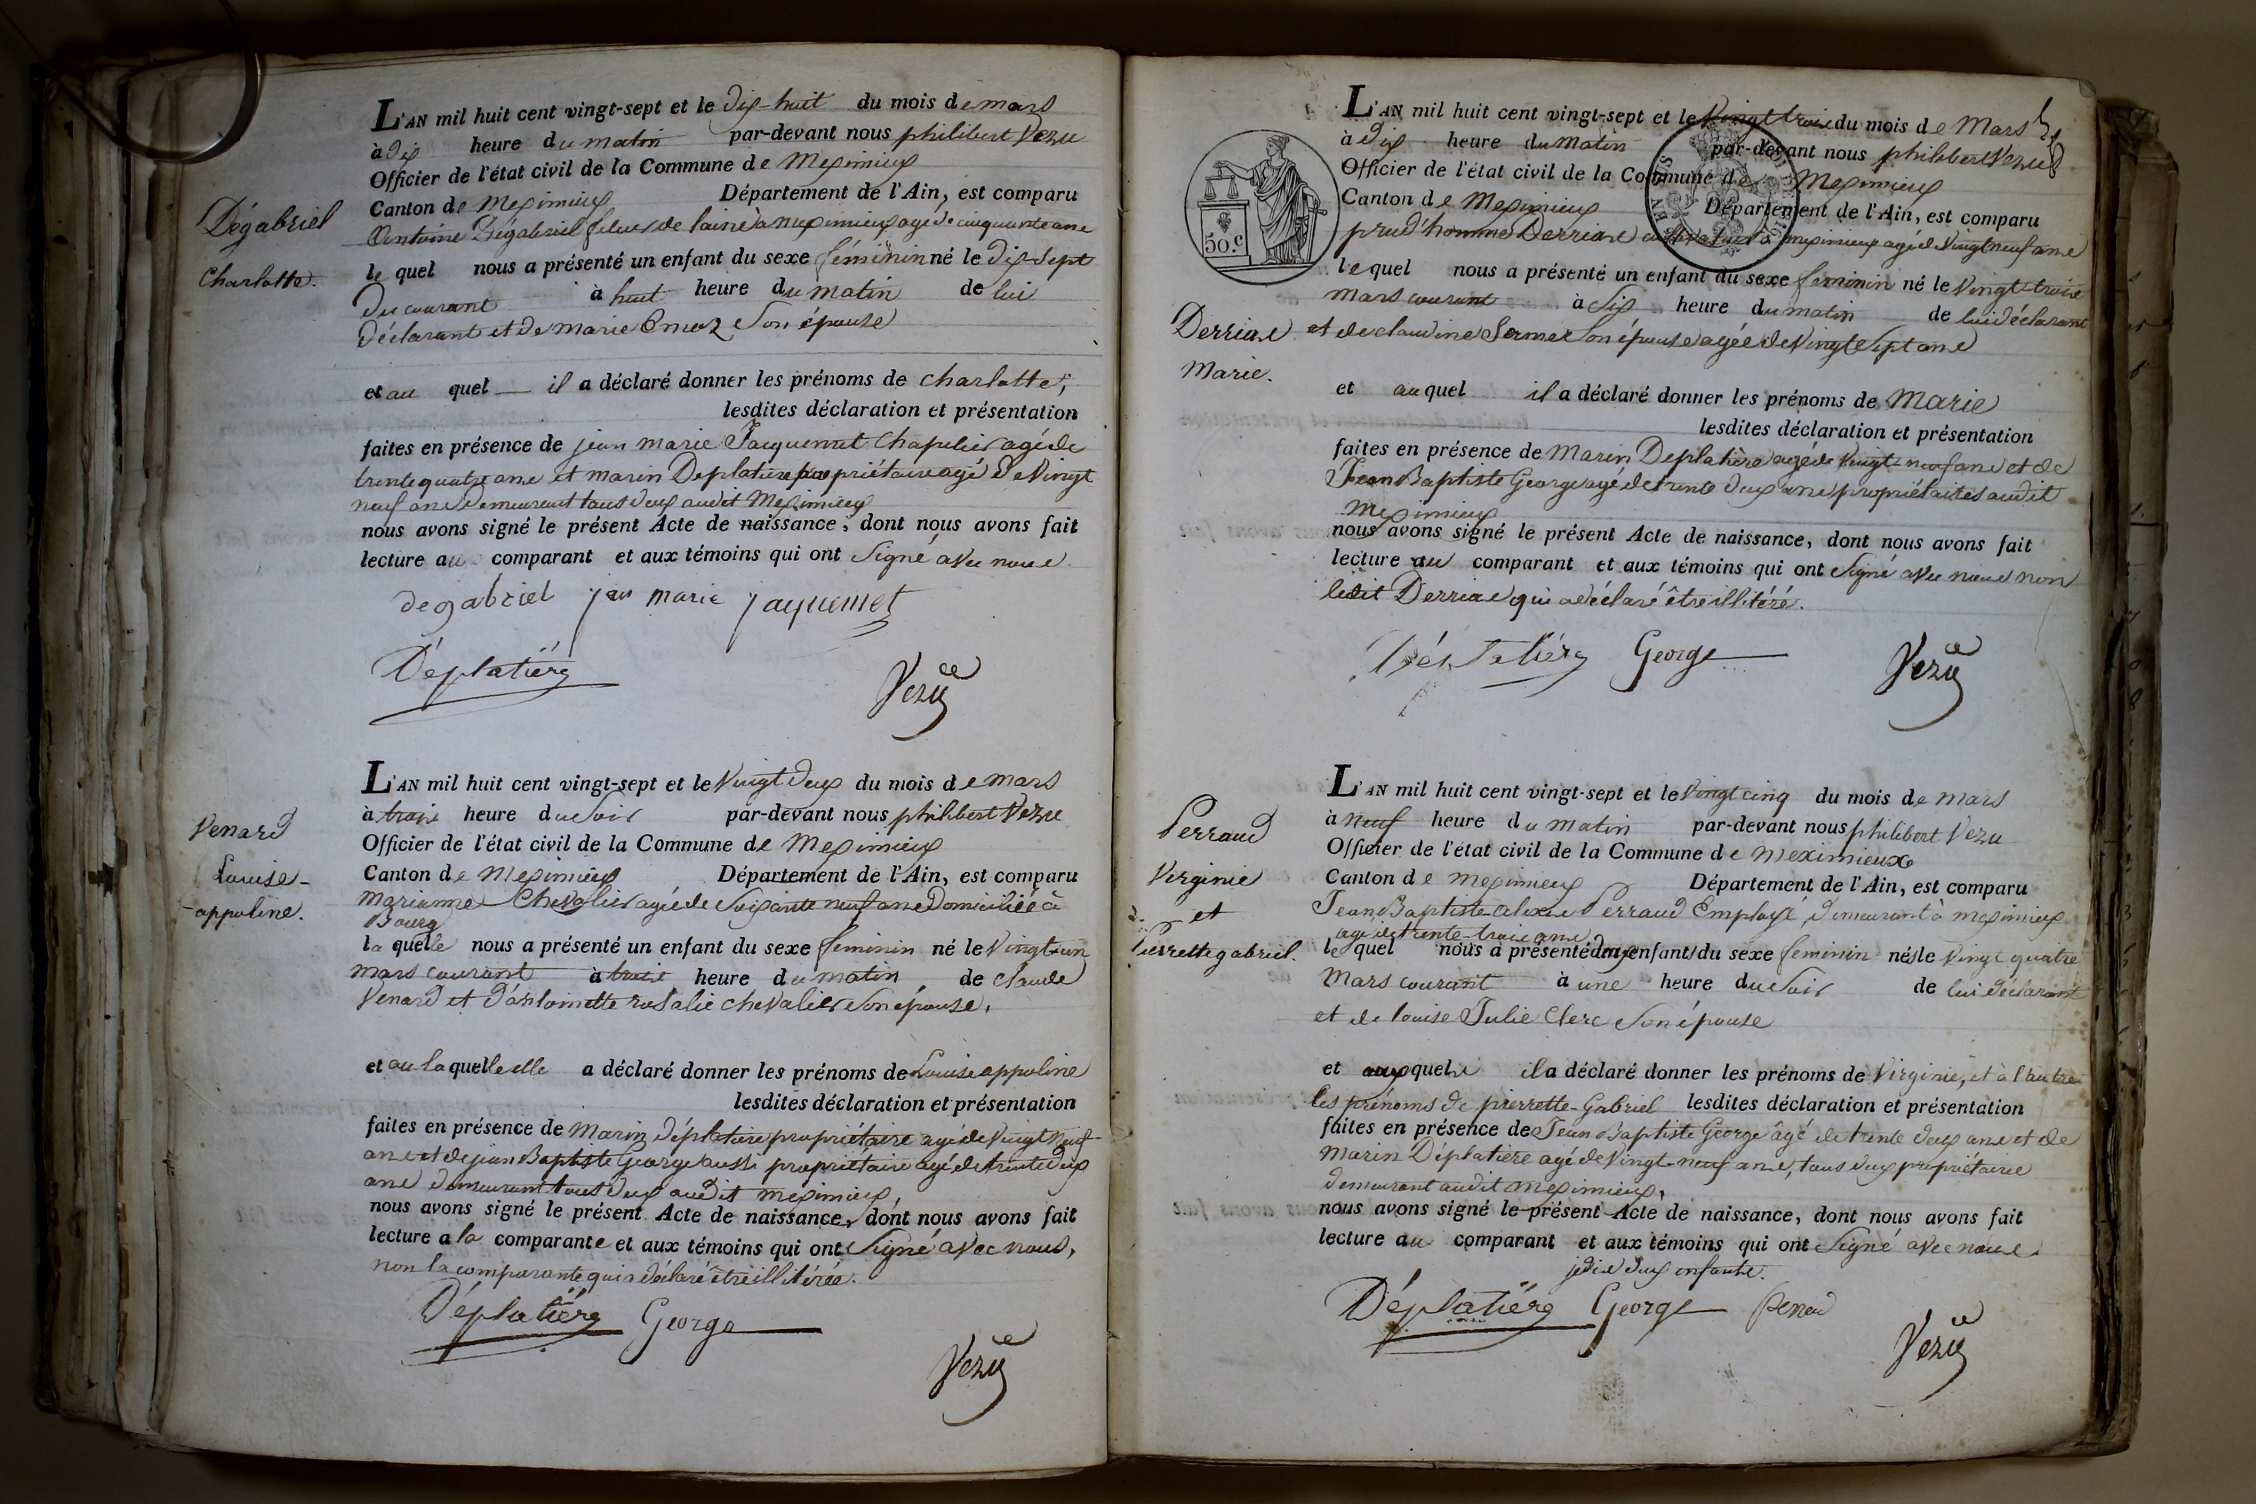 L'AN mil huit cent vingt-sept et le dix-huit du mois de mars
à dix heure du matin par-devant nous philibert Vezu
Officier de l'état civil de la Commune de Meximieux
Canton de Meximieux Département de l'Ain, est comparu
Antoine Dégabriel fileur de laine à Meximieux agé de cinquante ans
Dégabriel
Charlotte.
le quel nous a présenté un enfant du sexe féminin né le dix-sept
du courant à huit heure du matin de lui
déclarant et de marie son épouse
et au quel il a déclaré donner les prénoms de charlotte,
lesdites déclaration et présentation
faites en présence de jean marie Jacquemet Chapelier agé de
trente quatre ans et marin Déplatière propriétaire agé de Vingt
neuf ans demeurant tous deux audit Meximieux
nous avons signé le présent Acte de naissance, dont nous avons fait
lecture au comparant et aux témoins qui ont signé avec nous
degabriel jean marie jaquemet
Déplatière Vezu
L'AN mil huit cent vingt-sept et le Vingt deux du mois de mars
à trois heure du soir par-devant nous philibert Vezu
Officier de l'état civil de la Commune de Meximieux
Canton de Meximieux Département de l'Ain, est comparu
Marianne Chevalier agée de soixante neuf ans Domiciliée à
Bourg
Venard
Louise-
appoline.
la quelle nous a présenté un enfant du sexe féminin né le Vingt-un
mars courant à trois heure du matin de claude
Venard et d'antoinette rosalie chevalier son épouse,
et au laquelle elle a déclaré donner les prénoms de Louise appoline
lesdites déclaration et présentation
faites en présence de Marin déplatière propriétaire agé de Vingt Neuf
ans et de jean Baptiste George aussi propriétaire agé de trente deux
ans demeurant tous deux audit meximieux,
nous avons signé le présent Acte de naissance, dont nous avons fait
lecture a la comparante et aux témoins qui ont signé avec nous,
non la comparante qui a déclaré être illitérée.
Déplatière George
Vezu
L'AN mil huit cent vingt-sept et le Vingt trois du mois de Mars
à dix heure du matin par-devant nous philibert Vezu
Officier de l'état civil de la Commune de Meximieux
Canton de Meximieux Département de l'Ain, est comparu
prud'homme Derriax cultivateur à meximieux agé de Vingt neuf ans
50 c.
le quel nous a présenté un enfant du sexe féminin né le Vingt-trois
mars courant à six heure du matin de lui déclarant
et de claudine son épouse agée de Vingt sept ans
Derriax
Marie.
et auquel il a déclaré donner les prénoms de Marie
lesdites déclaration et présentation
faites en présence de Marin Déplatière agé de Vingt-neuf ans et de
Jean Baptiste George agé de trente deux ans propriétaires audit
Meximieux
nous avons signé le présent Acte de naissance, dont nous avons fait
lecture au comparant et aux témoins qui ont signé avec nous non
ledit Derriax qui a déclaré être illitéré.
Déplatière George Vezu
L'AN mil huit cent vingt-sept et le Vingt cinq du mois de Mars
à neuf heure du matin par-devant nous philibert Vezu
Officier de l'état civil de la Commune de Meximieux
Canton de Meximieux Département de l'Ain, est comparu
Jean Baptiste alexis Perraud Employé, demeurant à meximieux
agé de trente-trois ans
Perraud
Virginie
et
Pierrette gabriel.
le quel nous a présenté deux enfants du sexe féminin nés le Vingt quatre
Mars courant à une heure du soir de lui déclarant
et de louise Julie Clerc son épouse
et auxquels il a déclaré donner les prénoms de Virginie, et à l'autre
les prénoms de pierrette-Gabriel lesdites déclaration et présentation
faites en présence de Jean Baptiste George âgé de trente deux ans et de
Marin Déplatière agé de Vingt-neuf ans, tous deux propriétaire
demeurant audit Meximieux,
nous avons signé le présent Acte de naissance, dont nous avons fait
lecture au comparant et aux témoins qui ont signé avec nous.
deux enfants.
Déplatière George
Vezu